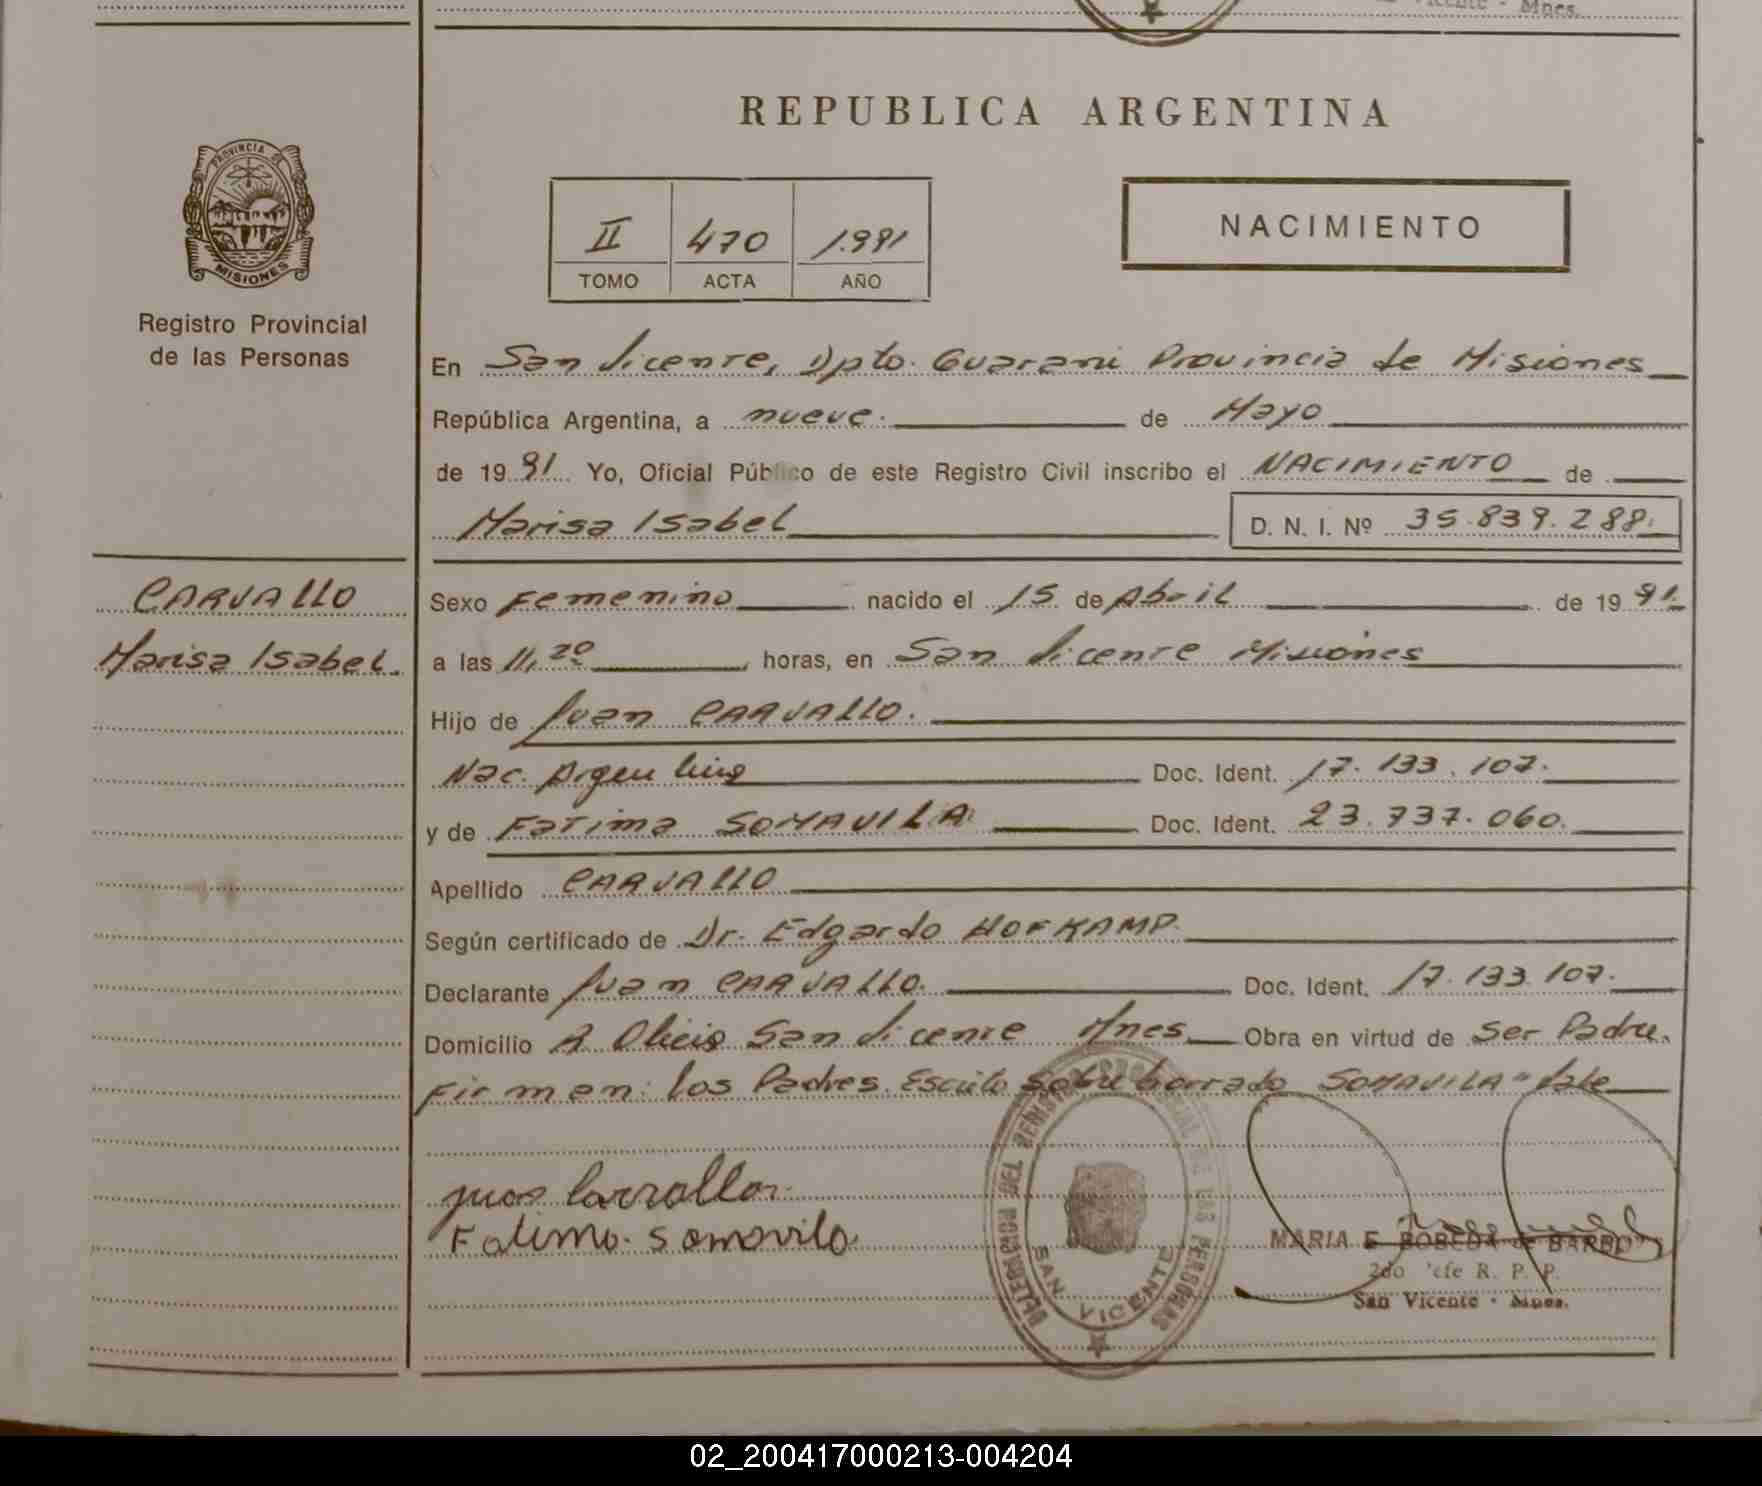 Vicente - Mnes.
REPUBLICA ARGENTINA
PROVINCIA DE
MISIONES
Registro Provincial
de las Personas
II 470 1.991
TOMO ACTA AÑO
NACIMIENTO
En San Vicente, Dpto. Guarani Provincia de Misiones
República Argentina, a nueve. de Mayo
de 19 91 Yo, Oficial Público de este Registro Civil inscribo el NACIMIENTO de
Marisa Isabel D. N. I. Nº 35.839.288.
CARVALLO
Marisa Isabel.
Sexo Femenino nacido el 15 de Abril de 19 91.
a las 11,20 horas, en San Vicente Misiones
Hijo de Juan CARVALLO.
Nac. Argentina Doc. Ident. 17.133.107.
y de Fatima SOMAVILA Doc. Ident. 23.737.060.
Apellido CARVALLO
Según certificado de Dr. Edgardo HOFKAMP.
Declarante Juan CARVALLO. Doc. Ident. 17.133.107.
Domicilio San Vicente Mnes Obra en virtud de Ser Padre.
Firman: los Padres. Escrito sobre borrado SOMAVILA" Vale
juan Carvallo
Fatima. Somavila
DEL REGISTRO PROVINCIAL DE LAS PERSONAS
SAN VICENTE
MARIA E. BOBEDA de BARBO
2do Jefe R. P. P.
San Vicente - Mnes.
02_200417000213-004204